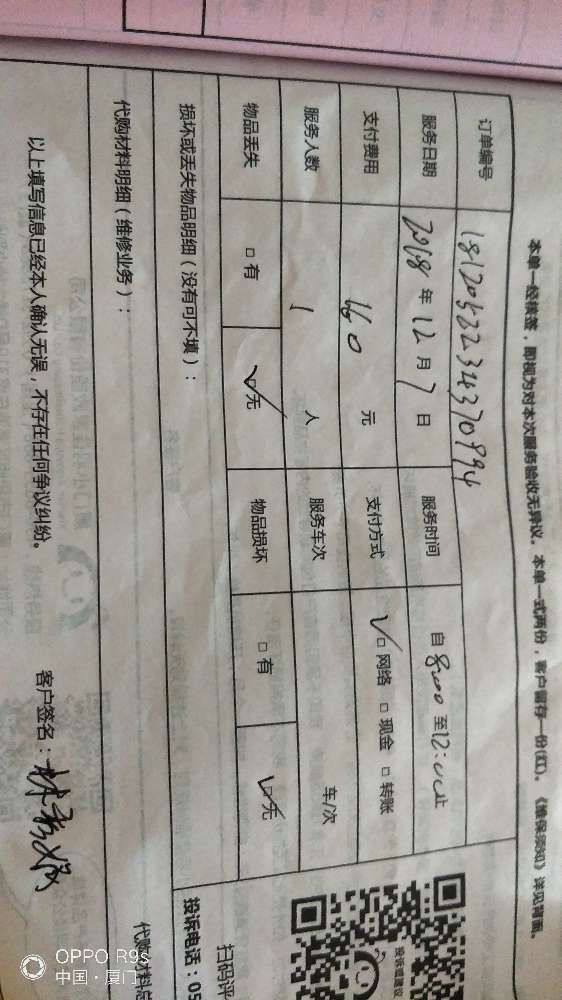 本单一经核签，即视为对本次服务验收无异议。本单一式两份，客户留存一份(红)。《维保须知》详见背面。
订单编号 1812052234370994
服务日期 2018 年 12 月 7 日 服务时间 自 8:00 至 12:00 止
支付费用 160 元 支付方式 ☑网络 □现金 □转账
服务人数 1 人 服务车次 车/次
物品丢失 □有 ☑无 物品损坏 □有 ☑无
损坏或丢失物品明细（没有可不填）：
代购材料明细（维修业务）：
代购材料总
以上填写信息已经本人确认无误，不存在任何争议纠纷。 客户签名：林
投诉建议
扫码评
投诉电话：05
OPPO R9s
中国·厦门